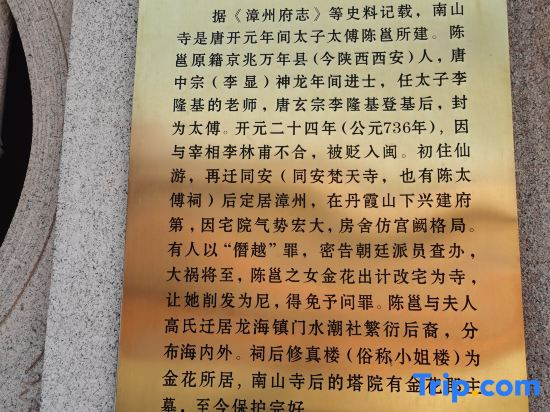 据《漳州府志》等史料记载，南山
寺是唐开元年间太子太傅陈邕所建。陈
邕原籍京兆万年县(今陕西西安)人，唐
中宗(李显)神龙年间进士，任太子李
隆基的老师，唐玄宗李隆基登基后，封
为太傅。开元二十四年(公元736年)，因
与宰相李林甫不合，被贬入闽。初住仙
游，再迁同安(同安梵天寺，也有陈太
傅祠)后定居漳州，在丹霞山下兴建府
第，因宅院气势宏大，房舍仿宫阙格局。
有人以“僭越”罪，密告朝廷派员查办，
大祸将至，陈邕之女金花出计改宅为寺，
让她削发为尼，得免予问罪。陈邕与夫人
高氏迁居龙海镇门水潮社繁衍后裔，分
布海内外。祠后修真楼(俗称小姐楼)为
金花所居，南山寺后的塔院有金花郡主
墓，至今保护完好
Trip.com